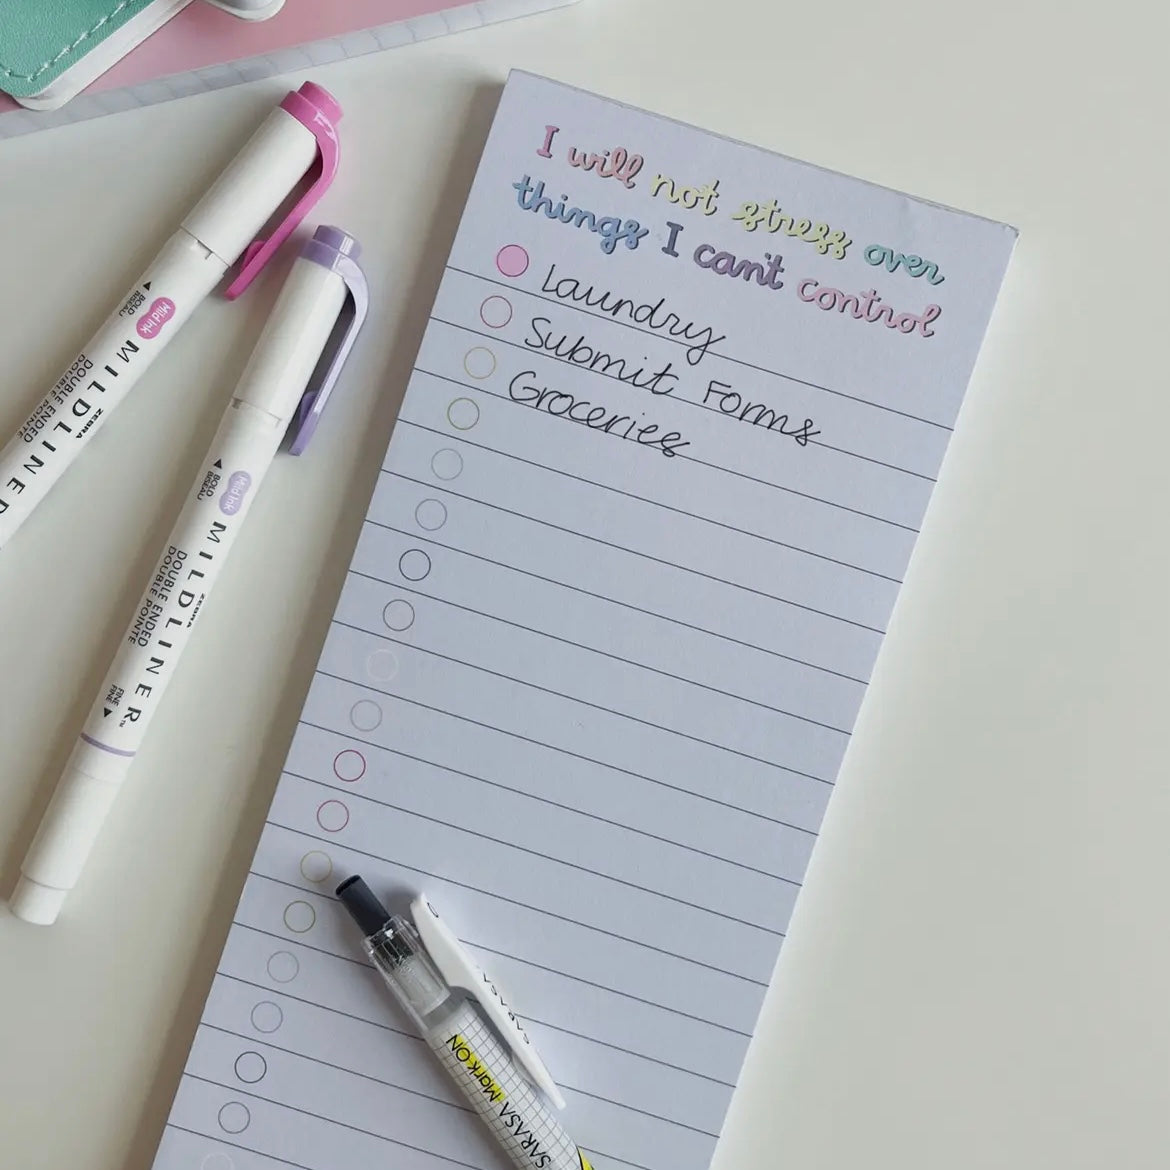 I will not stress over
things I can't control
Laundry
Submit Forms
Groceries
BOLD
BISEAU
Mild Ink
MILDLINER
ZEBRA
DOUBLE ENDED
DOUBLE POINTE
BOLD
BISEAU
Mild Ink
MILDLINER™
ZEBRA
DOUBLE ENDED
DOUBLE POINTE
FINE
FINE
SARASA
SARASA Mark ON